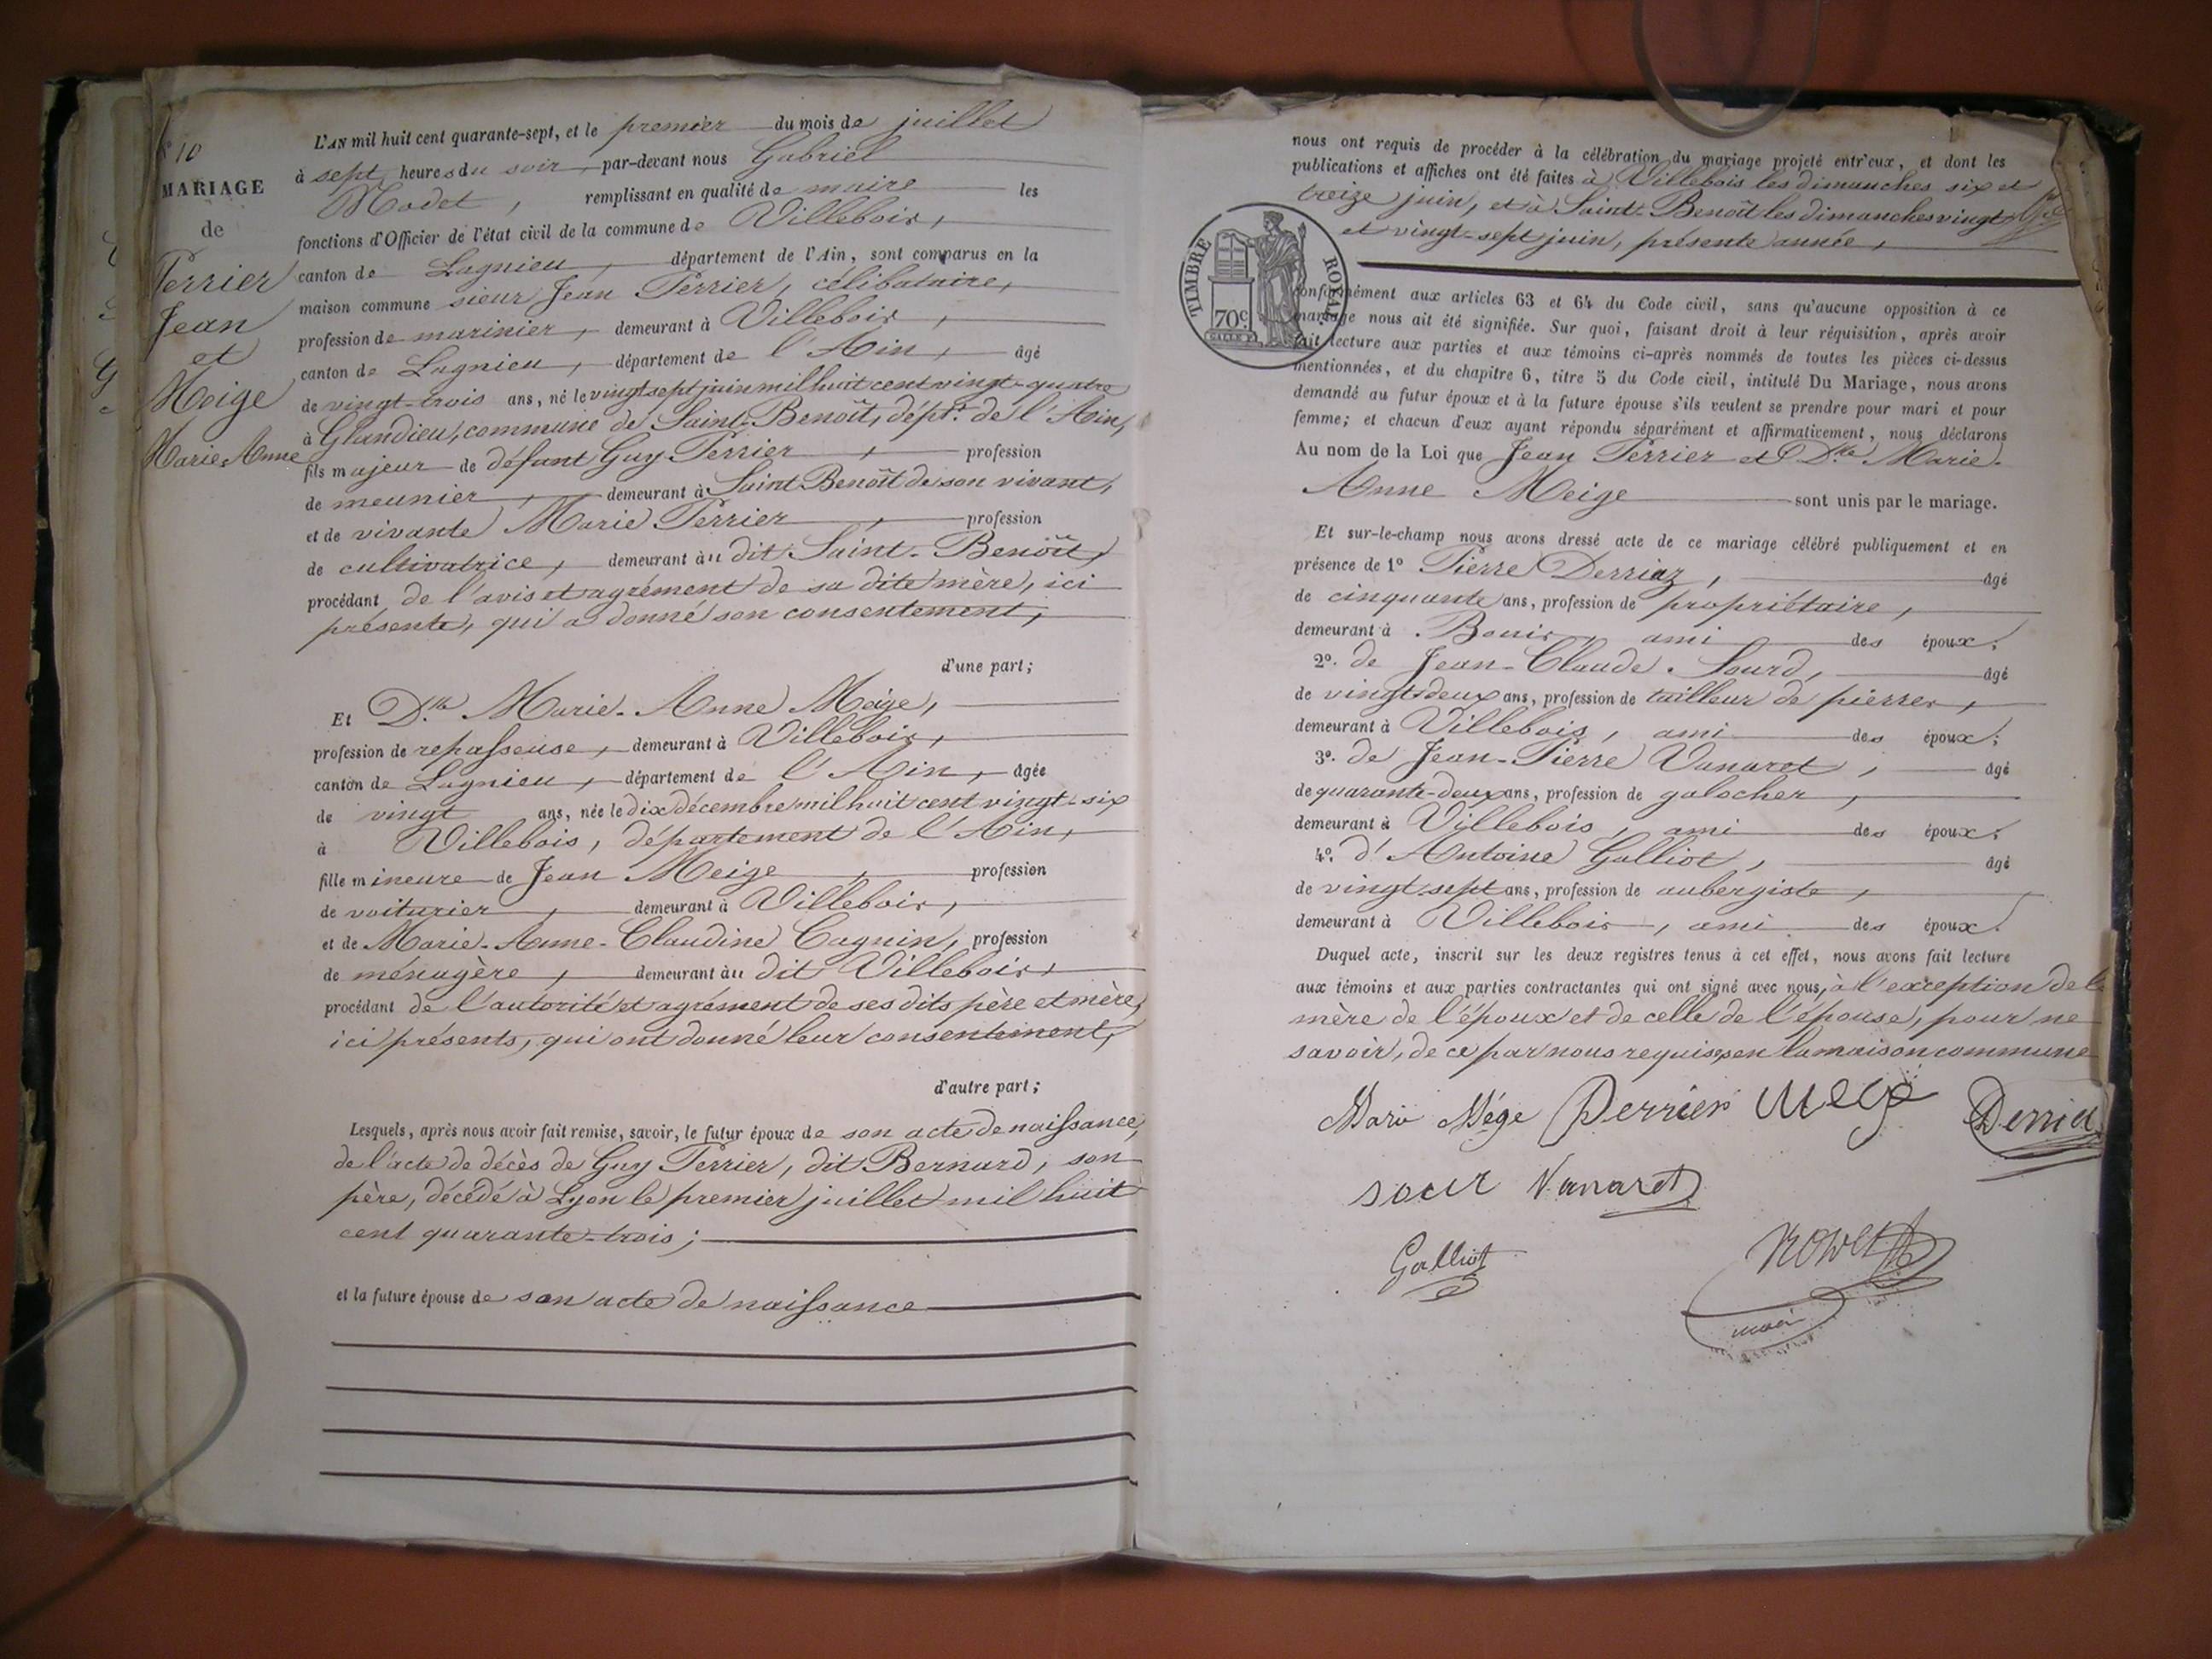 N° 10
MARIAGE
de
Perrier
Jean
et
Meige
Marie-Anne
L'AN mil huit cent quarante-sept, et le premier du mois de juillet
à sept heures du soir, par-devant nous Gabriel
Modet, remplissant en qualité de maire les
fonctions d'Officier de l'état civil de la commune de Villebois,
canton de Lagnieu, département de l'Ain, sont comparus en la
maison commune sieur Jean Perrier, célibataire,
profession de marinier, demeurant à Villebois,
canton de Lagnieu, département de l'Ain, âgé
de vingt-trois ans, né le vingt sept juin mil huit cent vingt-quatre
à Glandieu, commune de Saint-Benoît, dépt. de l'Ain,
fils majeur de défunt Guy Perrier, profession
de meunier, demeurant à Saint-Benoît de son vivant,
et de vivante Marie Perrier, profession
de cultivatrice, demeurant au dit Saint-Benoît,
procédant de l'avis et agrément de sa dite mère, ici
présente, qui a donné son consentement,
d'une part;
Et Dlle Marie-Anne Meige,
profession de repasseuse, demeurant à Villebois,
canton de Lagnieu, département de l'Ain, âgée
de vingt ans, née le dix décembre mil huit cent vingt-six
à Villebois, département de l'Ain,
fille mineure de Jean Meige, profession
de voiturier, demeurant à Villebois,
et de Marie-Anne-Claudine Cagnin, profession
de ménagère, demeurant au dit Villebois,
procédant de l'autorité et agrément de ses dits père et mère,
ici présents, qui ont donné leur consentement,
d'autre part;
Lesquels, après nous avoir fait remise, savoir, le futur époux de son acte de naissance,
de l'acte de décès de Guy Perrier, dit Bernard, son
père, décédé à Lyon le premier juillet mil huit
cent quarante-trois;
et la future épouse de son acte de naissance
nous ont requis de procéder à la célébration du mariage projeté entr'eux, et dont les
publications et affiches ont été faites à Villebois les dimanches six et
treize juin, et à Saint-Benoît les dimanches vingt
et vingt-sept juin, présente année,
TIMBRE ROYAL
70c.
conformément aux articles 63 et 64 du Code civil, sans qu'aucune opposition à ce
mariage nous ait été signifiée. Sur quoi, faisant droit à leur réquisition, après avoir
fait lecture aux parties et aux témoins ci-après nommés de toutes les pièces ci-dessus
mentionnées, et du chapitre 6, titre 5 du Code civil, intitulé Du Mariage, nous avons
demandé au futur époux et à la future épouse s'ils veulent se prendre pour mari et pour
femme; et chacun d'eux ayant répondu séparément et affirmativement, nous déclarons
Au nom de la Loi que Jean Perrier et Dlle Marie-
Anne Meige sont unis par le mariage.
Et sur-le-champ nous avons dressé acte de ce mariage célébré publiquement et en
présence de 1° Pierre Derriaz, âgé
de cinquante ans, profession de propriétaire,
demeurant à Bouis, ami des époux;
2°. de Jean-Claude Sourd, âgé
de vingt-deux ans, profession de tailleur de pierres,
demeurant à Villebois, ami des époux;
3°. de Jean-Pierre Vanaret, âgé
de quarante-deux ans, profession de galocher,
demeurant à Villebois, ami des époux;
4°. d'Antoine Galliot, âgé
de vingt-sept ans, profession de aubergiste,
demeurant à Villebois, ami des époux.
Duquel acte, inscrit sur les deux registres tenus à cet effet, nous avons fait lecture
aux témoins et aux parties contractantes qui ont signé avec nous, à l'exception de la
mère de l'époux et de celle de l'épouse, pour ne
savoir, de ce par nous requises, en la maison commune
Marie Mége Perrier Mege Derriaz
sour Vanaret
Galliot Modet
maire